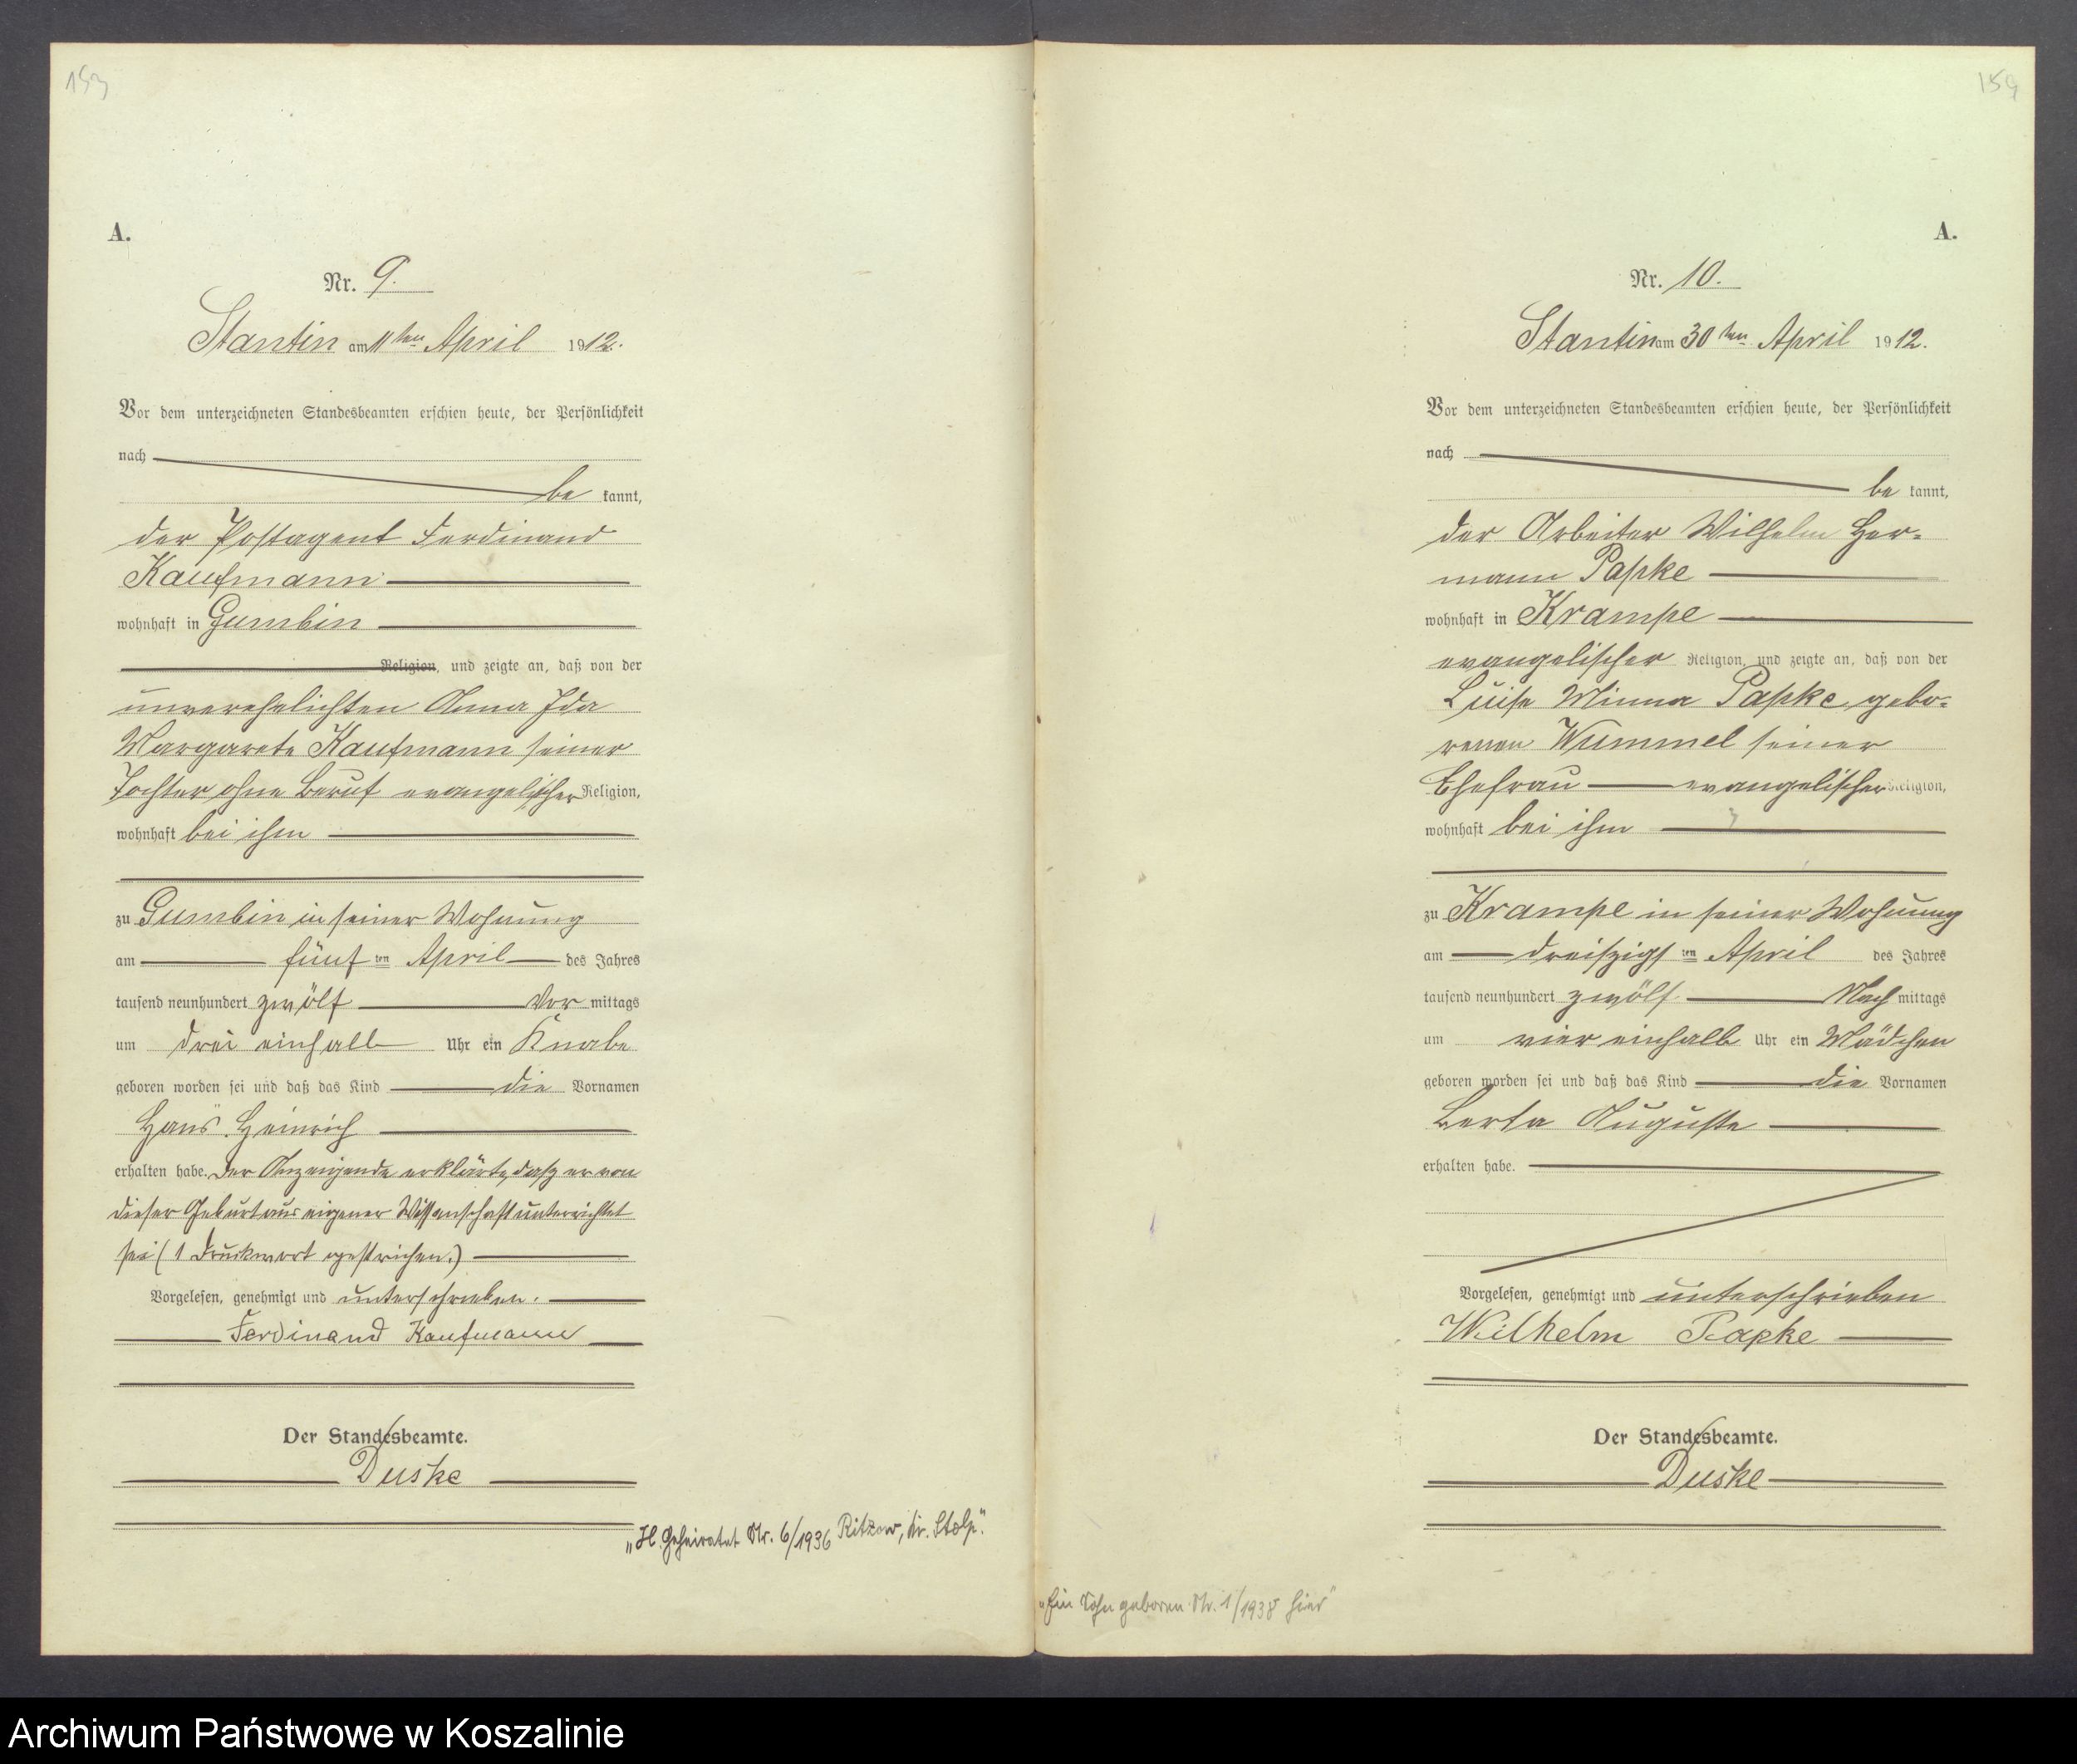 153
A.
Nr. 9.
Stantin am 11ten April 1912.
Vor dem unterzeichneten Standesbeamten erschien heute, der Persönlichkeit
nach
be kannt,
der Postagent Ferdinand
Kaufmann
wohnhaft in Gumbin
Religion, und zeigte an, daß von der
unverehelichten Anna Ida
Margarete Kaufmann seiner
Tochter ohne Beruf evangelischer Religion,
wohnhaft bei ihm
zu Gumbin in seiner Wohnung
am fünf ten April des Jahres
tausend neunhundert zwölf Vor mittags
um drei einhalb Uhr ein Knabe
geboren worden sei und daß das Kind die Vornamen
Hans Heinrich
erhalten habe. Der Anzeigende erklärte, dasz er von
dieser Geburt aus eigener Wissenschaft unterrichtet
sei (1 Druckwort gestrichen.)
Vorgelesen, genehmigt und unterschrieben.
Ferdinand Kaufmann
Der Standesbeamte.
Duske
„H. Geheiratet Nr. 6/1936 Ritzow, Kr. Stolp."
159
A.
Nr. 10.
Stantin am 30ten April 1912.
Vor dem unterzeichneten Standesbeamten erschien heute, der Persönlichkeit
nach
be kannt,
der Arbeiter Wilhelm Her-
mann Papke
wohnhaft in Krampe
evangelischer Religion, und zeigte an, daß von der
Luise Minna Papke gebo-
renen Wummel seiner
Ehefrau evangelischer Religion,
wohnhaft bei ihm
zu Krampe in seiner Wohnung
am dreiszigst ten April des Jahres
tausend neunhundert zwölf Nach mittags
um vier einhalb Uhr ein Mädchen
geboren worden sei und daß das Kind die Vornamen
Berta Auguste
erhalten habe.
Vorgelesen, genehmigt und unterschrieben
Wilhelm Papke
Der Standesbeamte.
Duske
„Ein Sohn geboren Nr. 1/1938 hier"
Archiwum Państwowe w Koszalinie